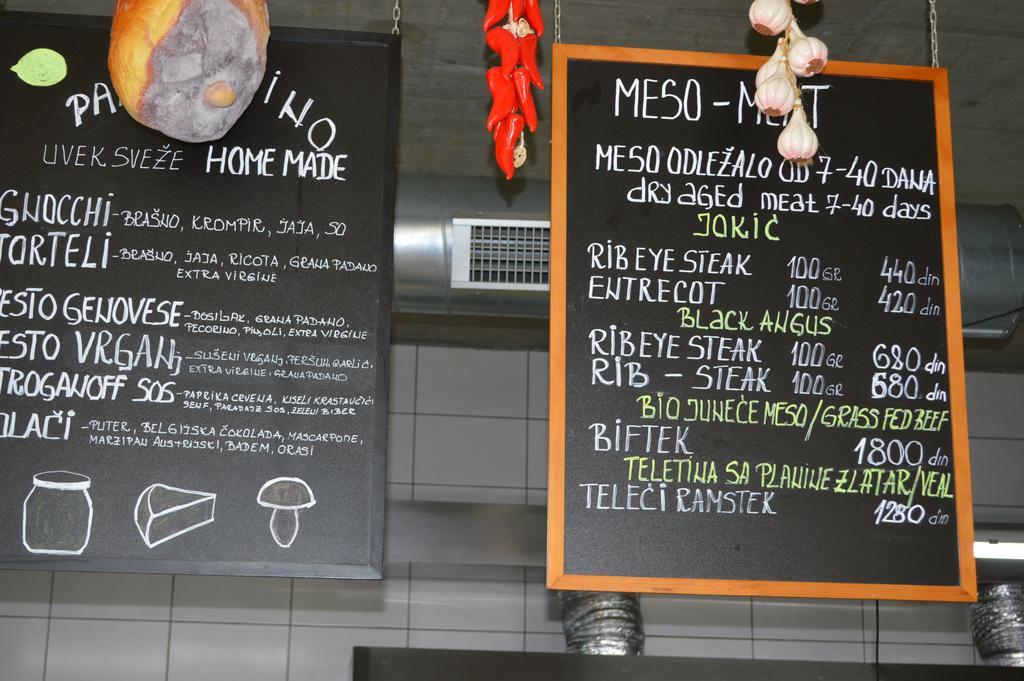 UVEK SVEŽE HOME MADE
GNOCCHI - BRAŠNO, KROMPIR, JAJA, SO
TORTELI - BRAŠNO, JAJA, RICOTA, GRANA PADANO
EXTRA VIRGINE
ESTO GENOVESE - BOSILJAK, GRANA PADANO,
PECORINO, PINJOLI, EXTRA VIRGINE
ESTO VRGANJ - SUŠENI VRGANJ, PERŠUN, GARLIĆ,
EXTRA VIRGINE, GRANA PADANO
TROGANOFF SOS - PAPRIKA CRVENA, KISELI KRASTAVČIĆI
SENF, PARADAJZ SOS, ZELENI BIBER
OLAČI - PUTER, BELGIJSKA ČOKOLADA, MASCARPONE,
MARZIPAN AUSTRIJSKI, BADEM, ORASI
MESO - MEAT
MESO ODLEŽALO OD 7-40 DANA
dry aged meat 7-40 days
JOKIĆ
RIB EYE STEAK 100 GR 440 din
ENTRECOT 100 GR 420 din
BLACK ANGUS
RIB EYE STEAK 100 GR 680 din
RIB - STEAK 100 GR 580 din
BIO JUNEĆE MESO / GRASS FED BEEF
BIFTEK 1800 din
TELETINA SA PLANINE ZLATAR/VEAL
TELEĆI RAMSTEK 1280 din